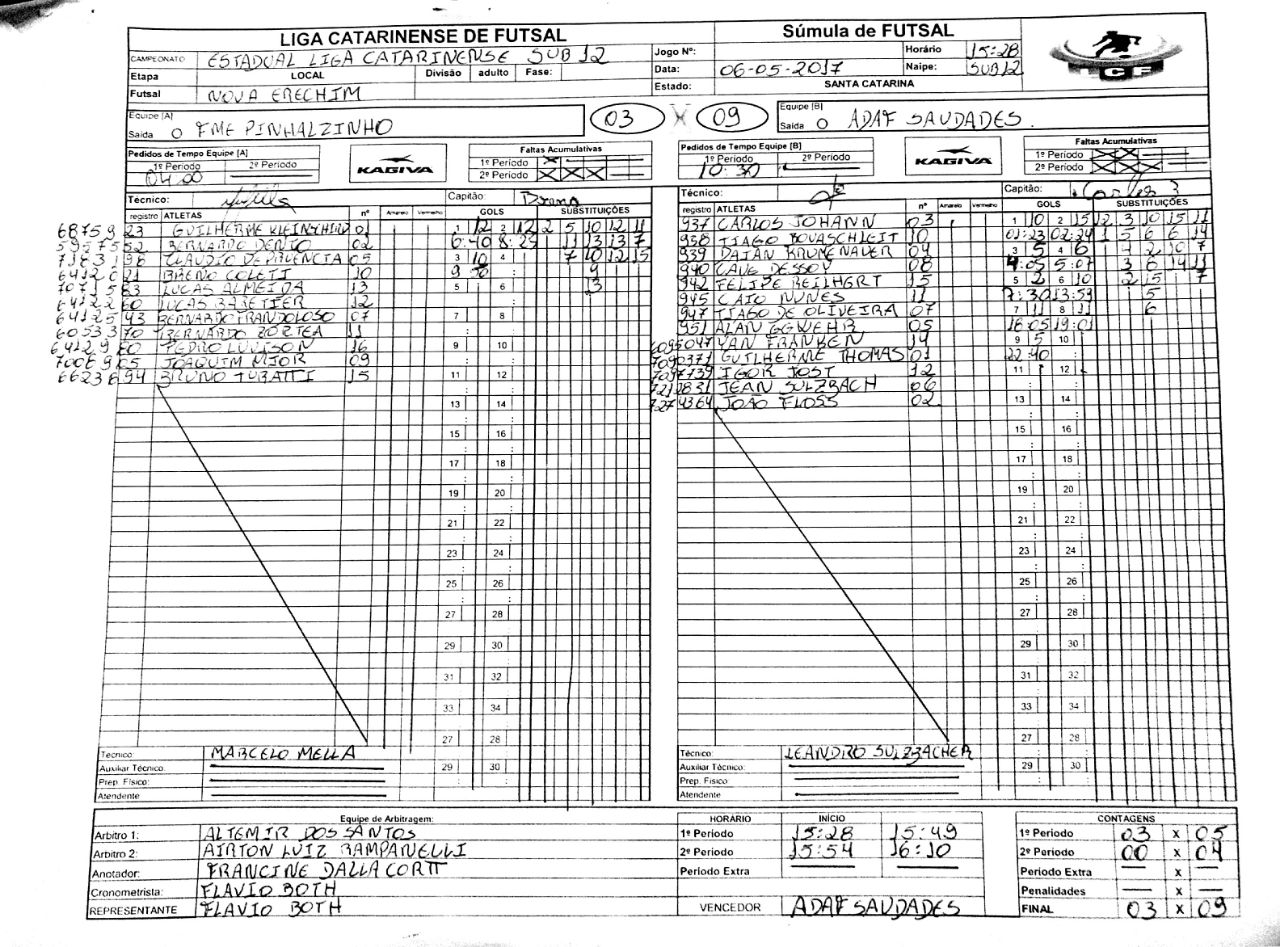 LIGA CATARINENSE DE FUTSAL
Súmula de FUTSAL
CAMPEONATO ESTADUAL LIGA CATARINENSE SUB 12
Jogo Nº: Horário 15:28
Etapa LOCAL Divisão adulto Fase:
Data: 06-05-2017 Naipe: SUB12
Futsal NOVA ERECHIM
Estado: SANTA CATARINA
LCF
Equipe [A]
Saida O FME PINHALZINHO
03 X 09
Equipe [B]
Saida O ADAF SAUDADES.
Pedidos de Tempo Equipe [A]
1º Periodo 2º Periodo
04:00
KAGIVA
Faltas Acumulativas
1º Periodo X
2º Periodo X X X
Técnico: Capitão: Breno
registro ATLETAS nº Amarelo Vermelho GOLS SUBSTITUIÇÕES
6875923 GUILHERME 01
5957552 BERNARDO 02
CLAUDIO 05
6412621 BRENO COLETI 10
7071583 LUCAS ALMEIDA 13
6412260 LUCAS 12
6412543 BERNARDO 07
6053370 BERNARDO BORTEA 11
6412980 PEDRO LUVISON 16
7006905 JOAQUIM NIOR 09
6623694 BRUNO TUBATTI 15
1 12 2 12 2 5 10 12 11
6:40 8:25 11 13 13 7
3 10 4 7 10 12 15
9:50 9
5 6 13
7 8
9 10
11 12
13 14
15 16
17 18
19 20
21 22
23 24
25 26
27 28
29 30
31 32
33 34
27 28
29 30
Técnico: MARCELO MELLA
Auxiliar Técnico:
Prep. Físico:
Atendente
Pedidos de Tempo Equipe [B]
1º Periodo 2º Periodo
10:30
KAGIVA
Faltas Acumulativas
1º Periodo X X
2º Periodo X X
Técnico: Capitão: Carlos
registro ATLETAS nº Amarelo Vermelho GOLS SUBSTITUIÇÕES
937 CARLOS JOHANN 03
938 TIAGO 10
939 DAIAN BRUNENAUER 04
940 CAUE DESSOY 08
942 FELIPE 15
945 CAIO NUNES 11
947 TIAGO DE OLIVEIRA 07
951 ALAN 05
6095047 YAN FRANKEN 14
7090371 GUILHERME THOMAS 01
7097739 IGOR JOST 12
7210831 JEAN SULZBACH 06
7274364 JOÃO FLOSS 02
1 10 2 15 12 3 10 15 11
01:23 02:24 1 5 6 6 14
3 5 4 6 4 2 10 7
4:05 5:07 3 6 14 11
5 2 6 10 2 15 7
7:30 13:59 5
7 11 8 11 6
18:05 19:01
9 5 10
22:40
11 12
13 14
15 16
17 18
19 20
21 22
23 24
25 26
27 28
29 30
31 32
33 34
27 28
29 30
Técnico: LEANDRO SULZBACHER
Auxiliar Técnico:
Prep. Físico
Atendente
Equipe de Arbitragem:
Arbitro 1: ALTEMIR DOS SANTOS
Arbitro 2: AIRTON LUIZ RAMPANELLI
Anotador: FRANCINE DALLA CORTT
Cronometrista: FLAVIO BOTH
REPRESENTANTE FLAVIO BOTH
HORÁRIO INÍCIO
1º Periodo 15:28 15:49
2º Periodo 15:54 16:10
Periodo Extra
VENCEDOR ADAF SAUDADES
CONTAGENS
1º Periodo 03 X 05
2º Periodo 00 X 04
Periodo Extra — X —
Penalidades — X —
FINAL 03 X 09